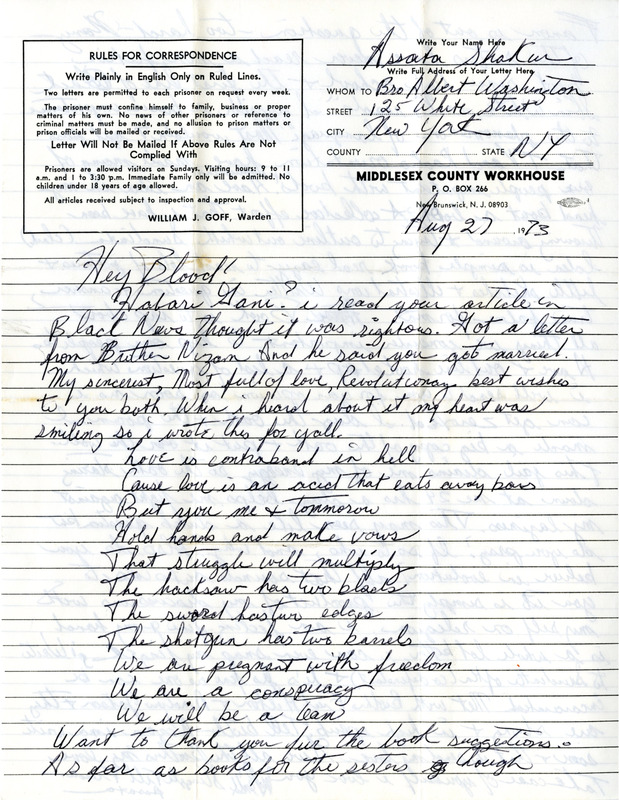 RULES FOR CORRESPONDENCE
Write Plainly in English Only on Ruled Lines.
Two letters are permitted to each prisoner on request every week.
The prisoner must confine himself to family, business or proper
matters of his own. No news of other prisoners or reference to
criminal matters must be made, and no allusion to prison matters or
prison officials will be mailed or received.
Letter Will Not Be Mailed If Above Rules Are Not
Complied With
Prisoners are allowed visitors on Sundays. Visiting hours: 9 to 11
a.m. and 1 to 3:30 p.m. Immediate Family only will be admitted. No
children under 18 years of age allowed.
All articles received subject to inspection and approval.
WILLIAM J. GOFF, Warden
Write Your Name Here
Assata Shakur
Write Full Address of Your Letter Here
WHOM TO Bro Albert Washington
STREET 125 White Street
CITY New York
COUNTY STATE NY
MIDDLESEX COUNTY WORKHOUSE
P. O. BOX 266
New Brunswick, N. J. 08903
Aug 27 1973
Hey Blood!
Habari Gani? i read your article in
Black News thought it was righteous. Got a letter
from Bruther Nizam And he said you got married.
My sincerest, Most full of love, Revolutionary best wishes
to you both. When i heard about it my heart was
smiling so i wrote this for yall.
Love is contraband in hell
Cause love is an acid that eats away bars
But you me & tommorow
Hold hands and make vows
That struggle will multiply
The hacksaw has two blads
The sword has two edges
The shotgun has two barrels
We are pregnant with freedom
We are a conspiracy
We will be a team
Want to thank you fur the book suggestions.
As far as books for the sisters though